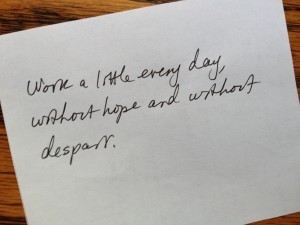 Work a little every day,
without hope and without
despair.